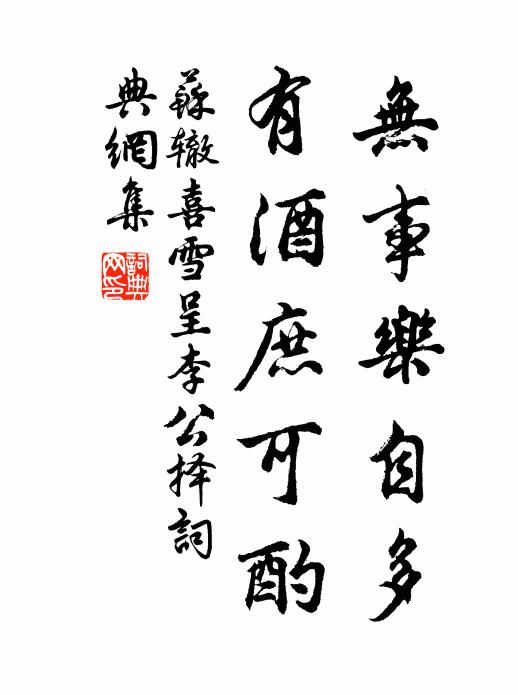 無事樂自多
有酒庶可酌
蘇辙喜雪呈李公择詞
典網集
詞典网印